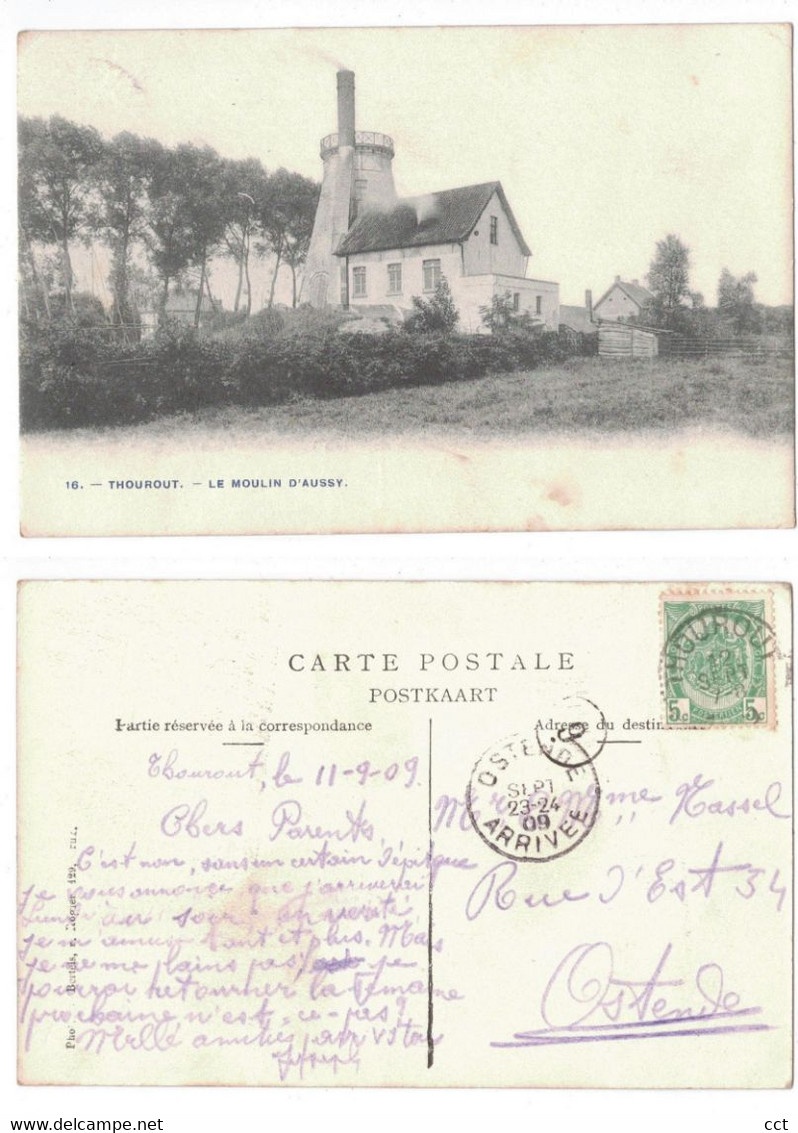 16. — THOUROUT. — LE MOULIN D'AUSSY.
CARTE POSTALE
POSTKAART
Partie réservée à la correspondance
Adresse du destin
THOUROUT
12
SEPT
5c 5c
OSTENDE
SEPT
23-24
09
ARRIVÉE
Thourout, le 11-9-09.
Chers Parents,
C'est non, sans un certain dépit que
je vous annonce que j'arriverai
lundi au soir. En vérité,
je m'amuse tant et plus. Mais
je ne me plains pas, je
pourrai retourner la semaine
prochaine n'est-ce-pas?
Mille amitiés, par vston
Joseph
Mr & Mme Hassel
Rue d'Est 34
Ostende
Pho Bertels, r. Rogier 129,
Delcampe.net
cct